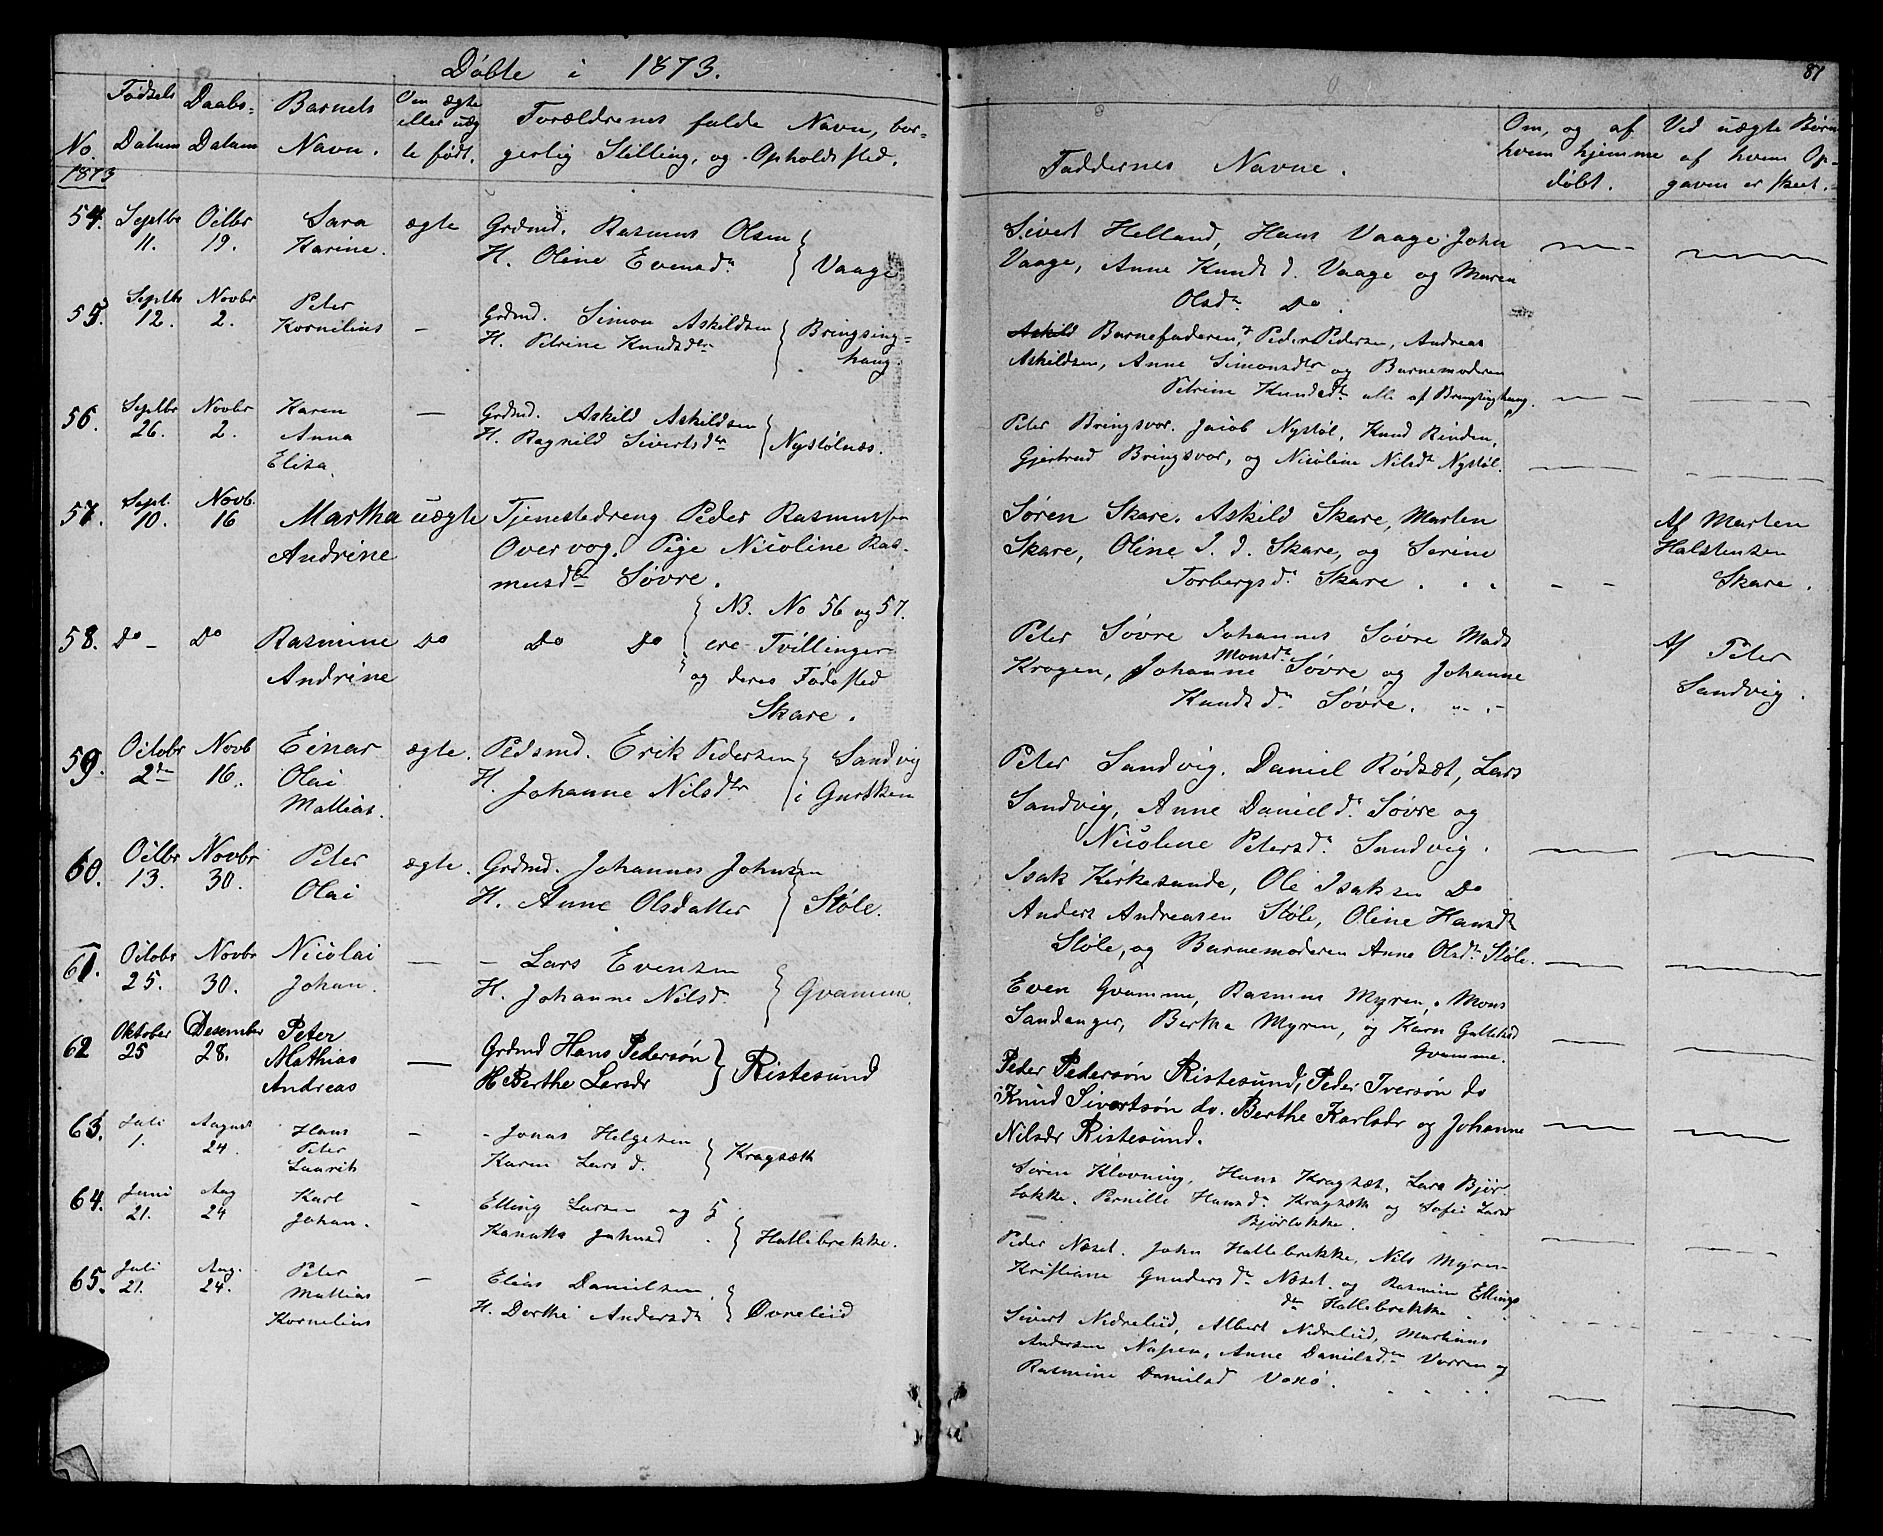 Døbte i 1873.
87
No.
1873
Fødsels
Datum
Daabs-
Datum
Barnets
Navn.
Om ægte
eller uæg
te født.
Forældrenes fulde Navn, bor-
gerlig Stilling, og Opholdssted.
Faddernes Navne.
Om, og af
hvem hjemme
døbt.
Ved uægte Børn
af hvem Op-
gaven er skeet.
54. Septbr 11. Octbr 19. Sara
Karine.
ægte
Grdmd. Rasmus Olsen
H. Oline Evensdr Vaage
Sivert Helland, Hans Vaage John
Vaage, Anne Knuds d. Vaage og Maren
Olsdr Do.
55. Septbr 12. Novbr 2. Peter
Kornelius
—
Grdmd. Simon Askildsen
H. Petrine Knudsdtr Bringsing-
haug
Askild Barnefaderen, Peder Pedersen, Andreas
Askildsen, Anne Simonsdtr og Barnemoderen
Petrine Knudsdtr alle af Bringsinghaug.
56. Septbr 26. Novbr 2. Karen
Anna
Elisa
—
Grdmd. Askild Askildsen
H. Ragnild Sivertsdtr Nystølnæs.
Peter Bringsvor. Jacob Nystøl, Knud Rinden,
Gjertrud Bringsvor, og Nicoline Nilsdr Nystøl.
57. Sept. 10. Novb. 16 Martha
Andrine
uægte
Tjenestedreng Peder Rasmussen
Overvog. Pige Nicoline Ras-
musdtr Søvre.
Søren Skare. Askild Skare, Marten
Skare, Oline J. d. Skare, og Serine
Torbergsd. Skare.
Af Marten
Halstensen
Skare.
NB. No 56 og 57.
ere Tvillinger
og deres Fødested
Skare.
58. Do Do Rasmine
Andrine
Do
Do Do
Peter Søvre Johannes Søvre Mads
Krogen, Johanne Monsdr Søvre og Johanne
Knuds dr Søvre.
Af Peter
Sandvig.
59. Octobr 2den Novb 16. Einar
Olai
Mattias.
ægte.
Pldsmd. Erik Pedersen
H. Johanne Nilsdtr Sandvig
i Gursken
Peter Sandvig. Daniel Rødsæt, Lars
Sandvig, Anne Daniel d. Søvre og
Nicoline Petersdr Sandvig.
60. Octbr 13. Novbr 30. Peter
Olai
ægte.
Grdmd. Johannes Johnsen
H. Anne Olsdatter Støle.
Isak Kirkesunde, Ole Isaksen Do
Anders Andreasen Støle, Oline Hansdr
Støle, og Barnemoderen Anne Olsdr Støle.
61. Octobr 25. Novbr 30. Nicolai
Johan.
—
- Lars Evensen
H. Johanne Nilsd. Gvamme.
Even Gvamme, Rasmus Myren, Mons
Sandanger, Berthe Myren, og Karn
Gvamme.
62 Oktober 25 Desember 28. Peter
Mathias
Andreas
—
Grdmd Hans Pedersøn
H Berthe Larsdr Ristesund
Peder Pedersøn Ristesund, Peder Iversøn do
Knud Sivertsøn do. Berthe Karlsdr og Johanne
Nilsdr Ristesund.
63. Juli 1. August 24. Hans
Peter
Laurits
-
- Jonas Helgesen
Karen Lars d. Kragsæth
Søren Kløvning, Hans Kragsæt, Lars Bjør
løkke. Pernille Hansdr Kragsæth og Sofie Larsd
Bjørløkke.
64. Juni 21. Aug 24 Karl
Johan.
-
Elling Larsen og H
Johnsd. Hallebrekke.
Peder Næset. John Hallebrekke, Nils Myren
Kristiane Gunders dr Næset og Rasmine Ellings
dtr Hallebrekke
65. Juli 21. Aug. 24. Peter
Mattias
Kornelius
-
Elias Danielsen.
H. Dorthe Andersdr Øvreliid
Sivert Nedreliid, Albert Nedreliid, Martinus
Andersen Anne Danielsdtr Vorren og
Rasmine Danielsd